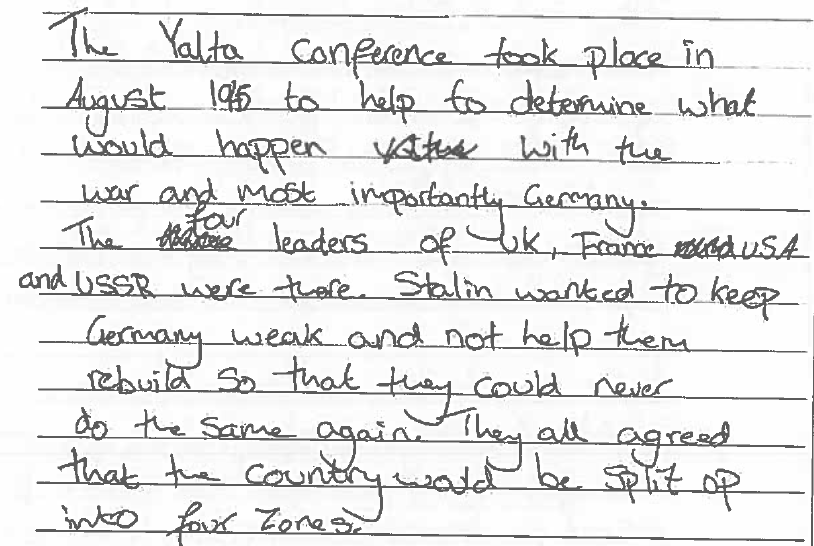 The Yalta Conference took place in
August 1945 to help to determine what
would happen with the
war and most importantly Germany.
The four leaders of UK, France USA
and USSR were there. Stalin wanted to keep
Germany weak and not help them
rebuild so that they could never
do the same again. They all agreed
that the country would be split op
into four zones.